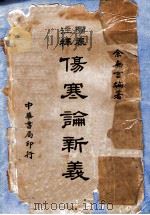 圖表
註釋
余無言編著
傷寒論新義
中華書局印行